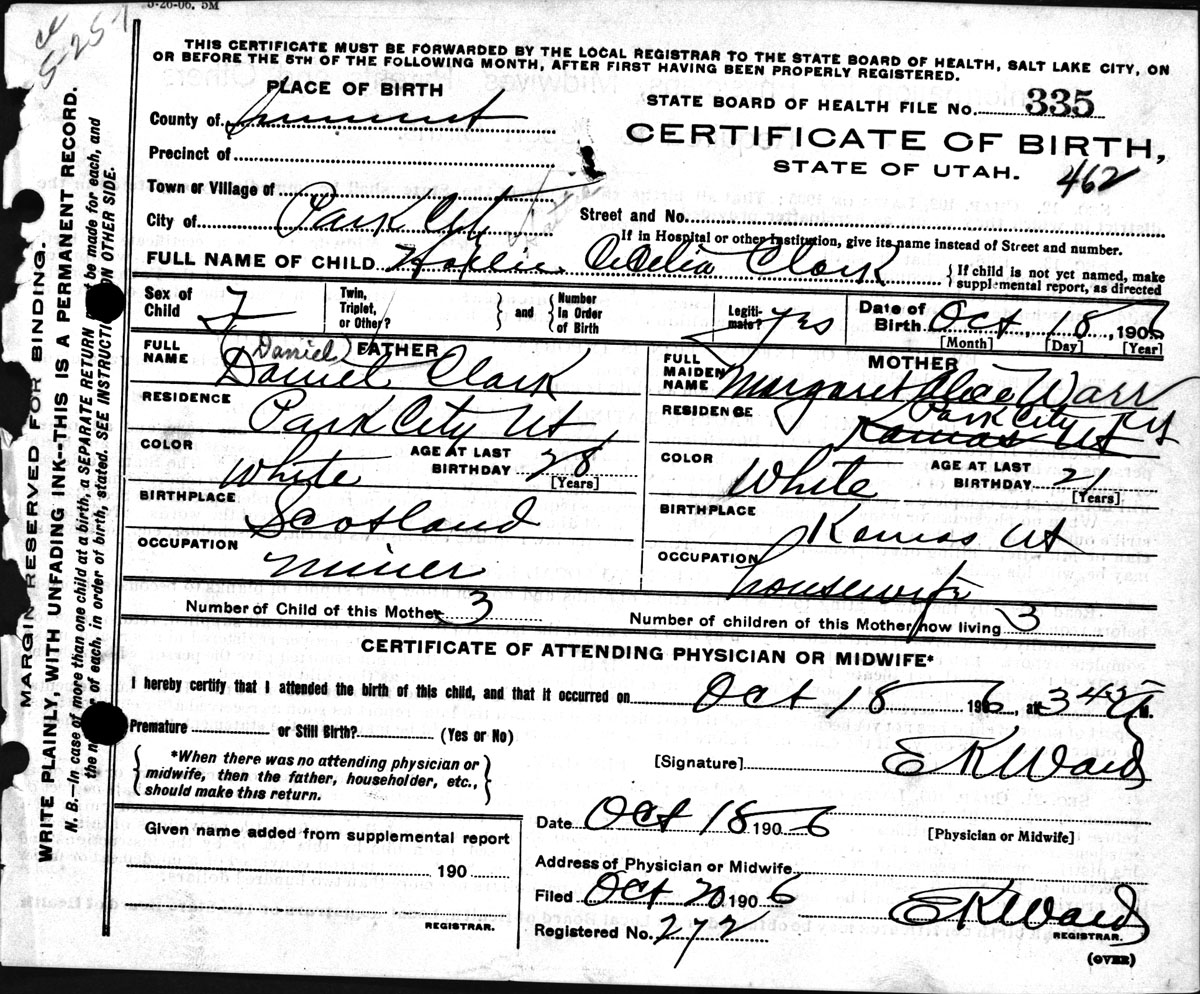 5-26-06. 5M
5-25-
THIS CERTIFICATE MUST BE FORWARDED BY THE LOCAL REGISTRAR TO THE STATE BOARD OF HEALTH, SALT LAKE CITY, ON
OR BEFORE THE 5TH OF THE FOLLOWING MONTH, AFTER FIRST HAVING BEEN PROPERLY REGISTERED.
PLACE OF BIRTH
STATE BOARD OF HEALTH FILE No. 335
County of Summit
CERTIFICATE OF BIRTH,
STATE OF UTAH. 462
Precinct of
Town or Village of
City of Park City
Street and No.
If in Hospital or other Institution, give its name instead of Street and number.
FULL NAME OF CHILD Cecelia Clark
{ If child is not yet named, make supplemental report, as directed
Sex of Child F
Twin, Triplet, or Other? } and { Number In Order of Birth
Legitimate? Yes
Date of Birth Oct 18, 1906
[Month] [Day] [Year]
FATHER
FULL NAME Daniel Clark
(Daniel)
RESIDENCE Park City Ut
COLOR White
AGE AT LAST BIRTHDAY 28 [Years]
BIRTHPLACE Scotland
OCCUPATION Miner
MOTHER
FULL MAIDEN NAME Margaret Alice Warr
RESIDENCE Park City Ut
Kamas Ut
COLOR White
AGE AT LAST BIRTHDAY 21 [Years]
BIRTHPLACE Kamas Ut
OCCUPATION housewife
Number of Child of this Mother 3
Number of children of this Mother now living 3
CERTIFICATE OF ATTENDING PHYSICIAN OR MIDWIFE*
I hereby certify that I attended the birth of this child, and that it occurred on Oct 18 1906, at 3 M.
Premature or Still Birth? (Yes or No)
{ *When there was no attending physician or midwife, then the father, householder, etc., should make this return. }
[Signature] E K Ward
Date Oct 18 1906
[Physician or Midwife]
Given name added from supplemental report
190
REGISTRAR.
Address of Physician or Midwife
Filed Oct 20 1906
E K Ward
REGISTRAR.
Registered No. 272
(OVER)
MARGIN RESERVED FOR BINDING.
WRITE PLAINLY, WITH UNFADING INK--THIS IS A PERMANENT RECORD.
N. B.—In case of more than one child at a birth, a SEPARATE RETURN must be made for each, and
the of each, in order of birth, stated. SEE INSTRUCTIONS ON OTHER SIDE.